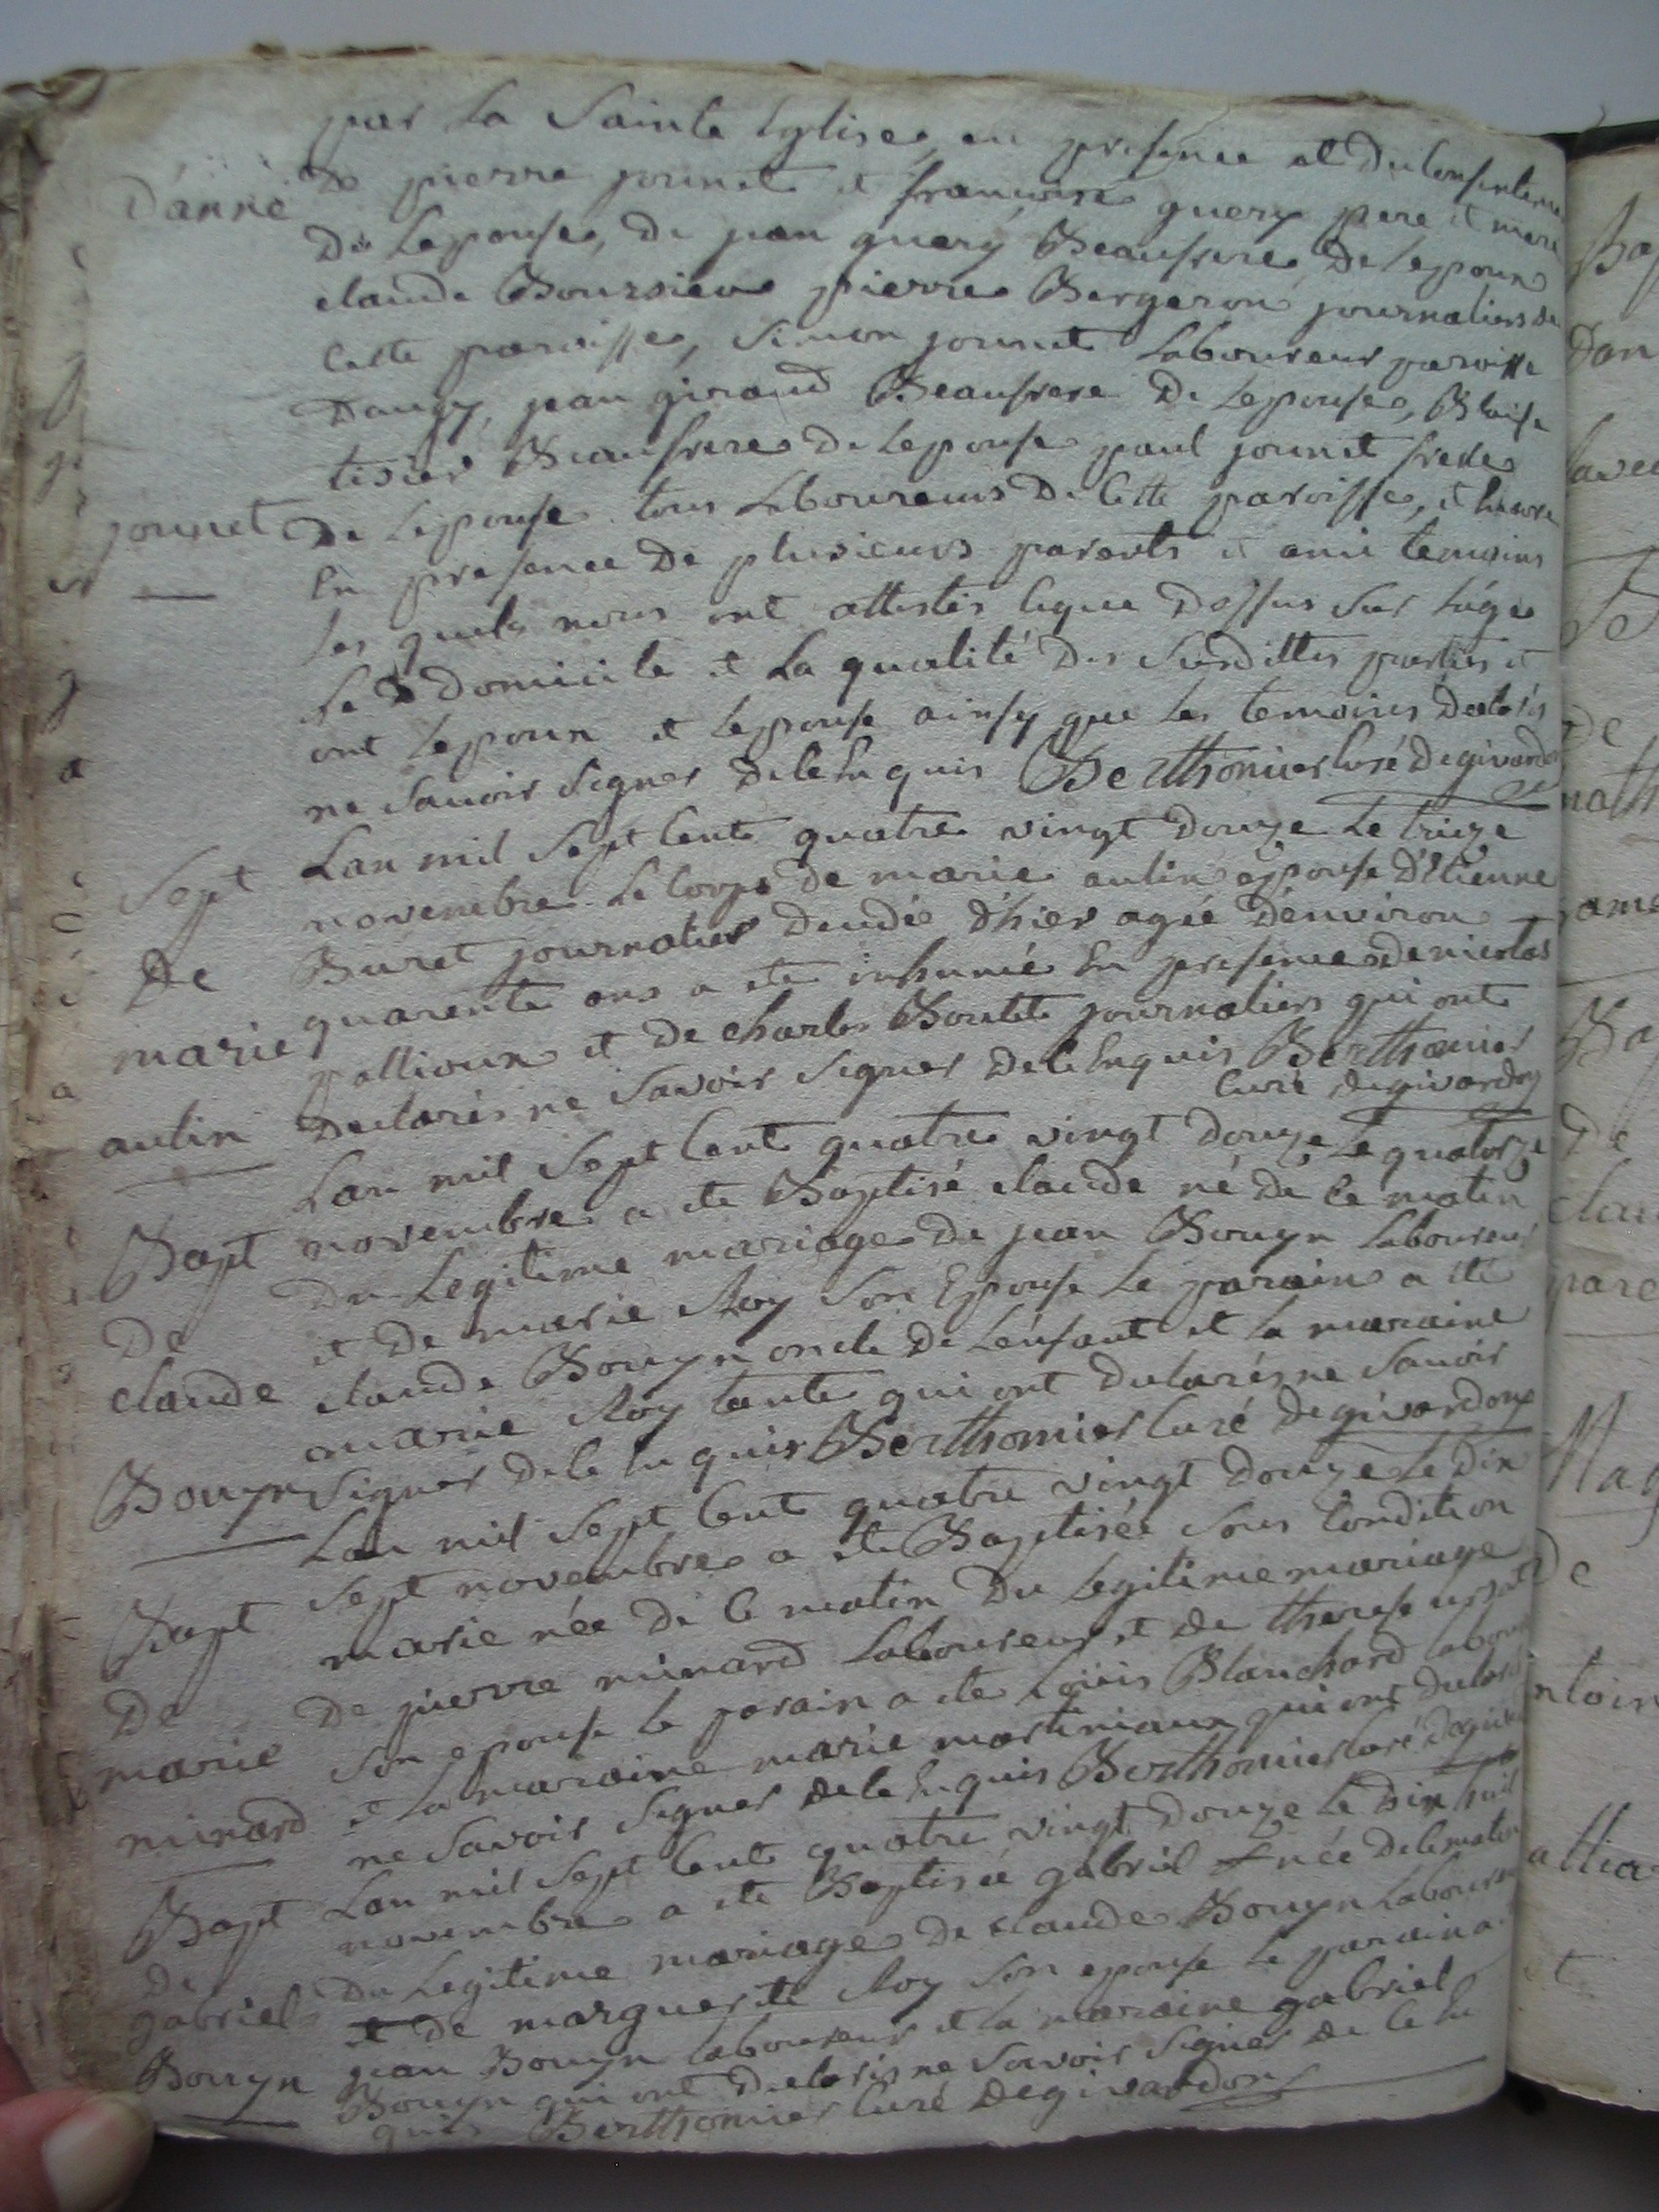 par la Sainte Eglise, en presence et du Consenteme
d'anne
de pierre jounet et francoise guery pere et mere
de Lepouse, de jean guery Beaufrere de lepoux
claude Boursieur pierre Bergeron journaliers de
Cette paroisse, Simon jounet Laboureur paroisse
Daugy, jean giraud Beaufrere de Lepouse, Blaise
tixier Beaufrere de Lepouse paul jounet frere
jounet
de Lepouse tous Laboureurs de Cette paroisse, et Encore
En presence de plusieurs parents et ami temoins
Les quels nous ont attestés Ceque dessus Sur l'age
Le domicile et La qualité des Susdittes parties et
ont Lepoux et Lepouse ainsy que les temoins declarés
ne Savoir Signer dece Enquis Berthomier Curé de givardon
Sept
Lan mil Sept Cent quatre vingt douze Le treize
novembre Le Corps de marie autin epouse d'Etienne
De
Buret journalier decedée d'hier agée denviron
marie
quarente ans a ete inhumé En presence de nicolas
pallioux et de charles Boulet journaliers qui ont
autin
declarés ne Savoir Signer dece Enquis Berthomier
Curé degivardon
Lan mil Sept Cent quatre vingt douze Le quatorze
Bapt
novembre a ete Baptisé claude né de ce matin
Du Legitime mariage de jean Bouyn laboureur
De
et de marie Roy Son Epouse Le parain a ete
claude
claude Bouyn oncle de Lenfant et la maraine
marie Roy tante qui ont declarés ne Savoir
Bouyn
Signer dece Enquis Berthomier Curé de givardon
Lan mil Sept Cent quatre vingt douze Le dix
Bapt
Sept novembre a ete Baptisée Sous Condition
marie née de ce matin du Legitime mariage
De
De pierre minard Laboureur et de therese
marie
Son epouse le parain a ete Loüis Blanchard labour
minard
et la maraine marie martiniaux qui ont declarés
ne Savoir Signer dece Enquis Berthomier Curé degiv
Bapt
Lan mil Sept Cent quatre vingt douze le dix huit
novembre a ete Baptisée gabriel née dece matin
De
du Legitime mariage de claude Bouyn Laboureur
gabriel
et de marguerite Roy Son epouse Le parain a
Bouyn
jean Bouyn laboureur et la maraine gabriel
Bouyn qui ont declarés ne Savoir Signer de ce En
quis Berthomier Curé degivardon